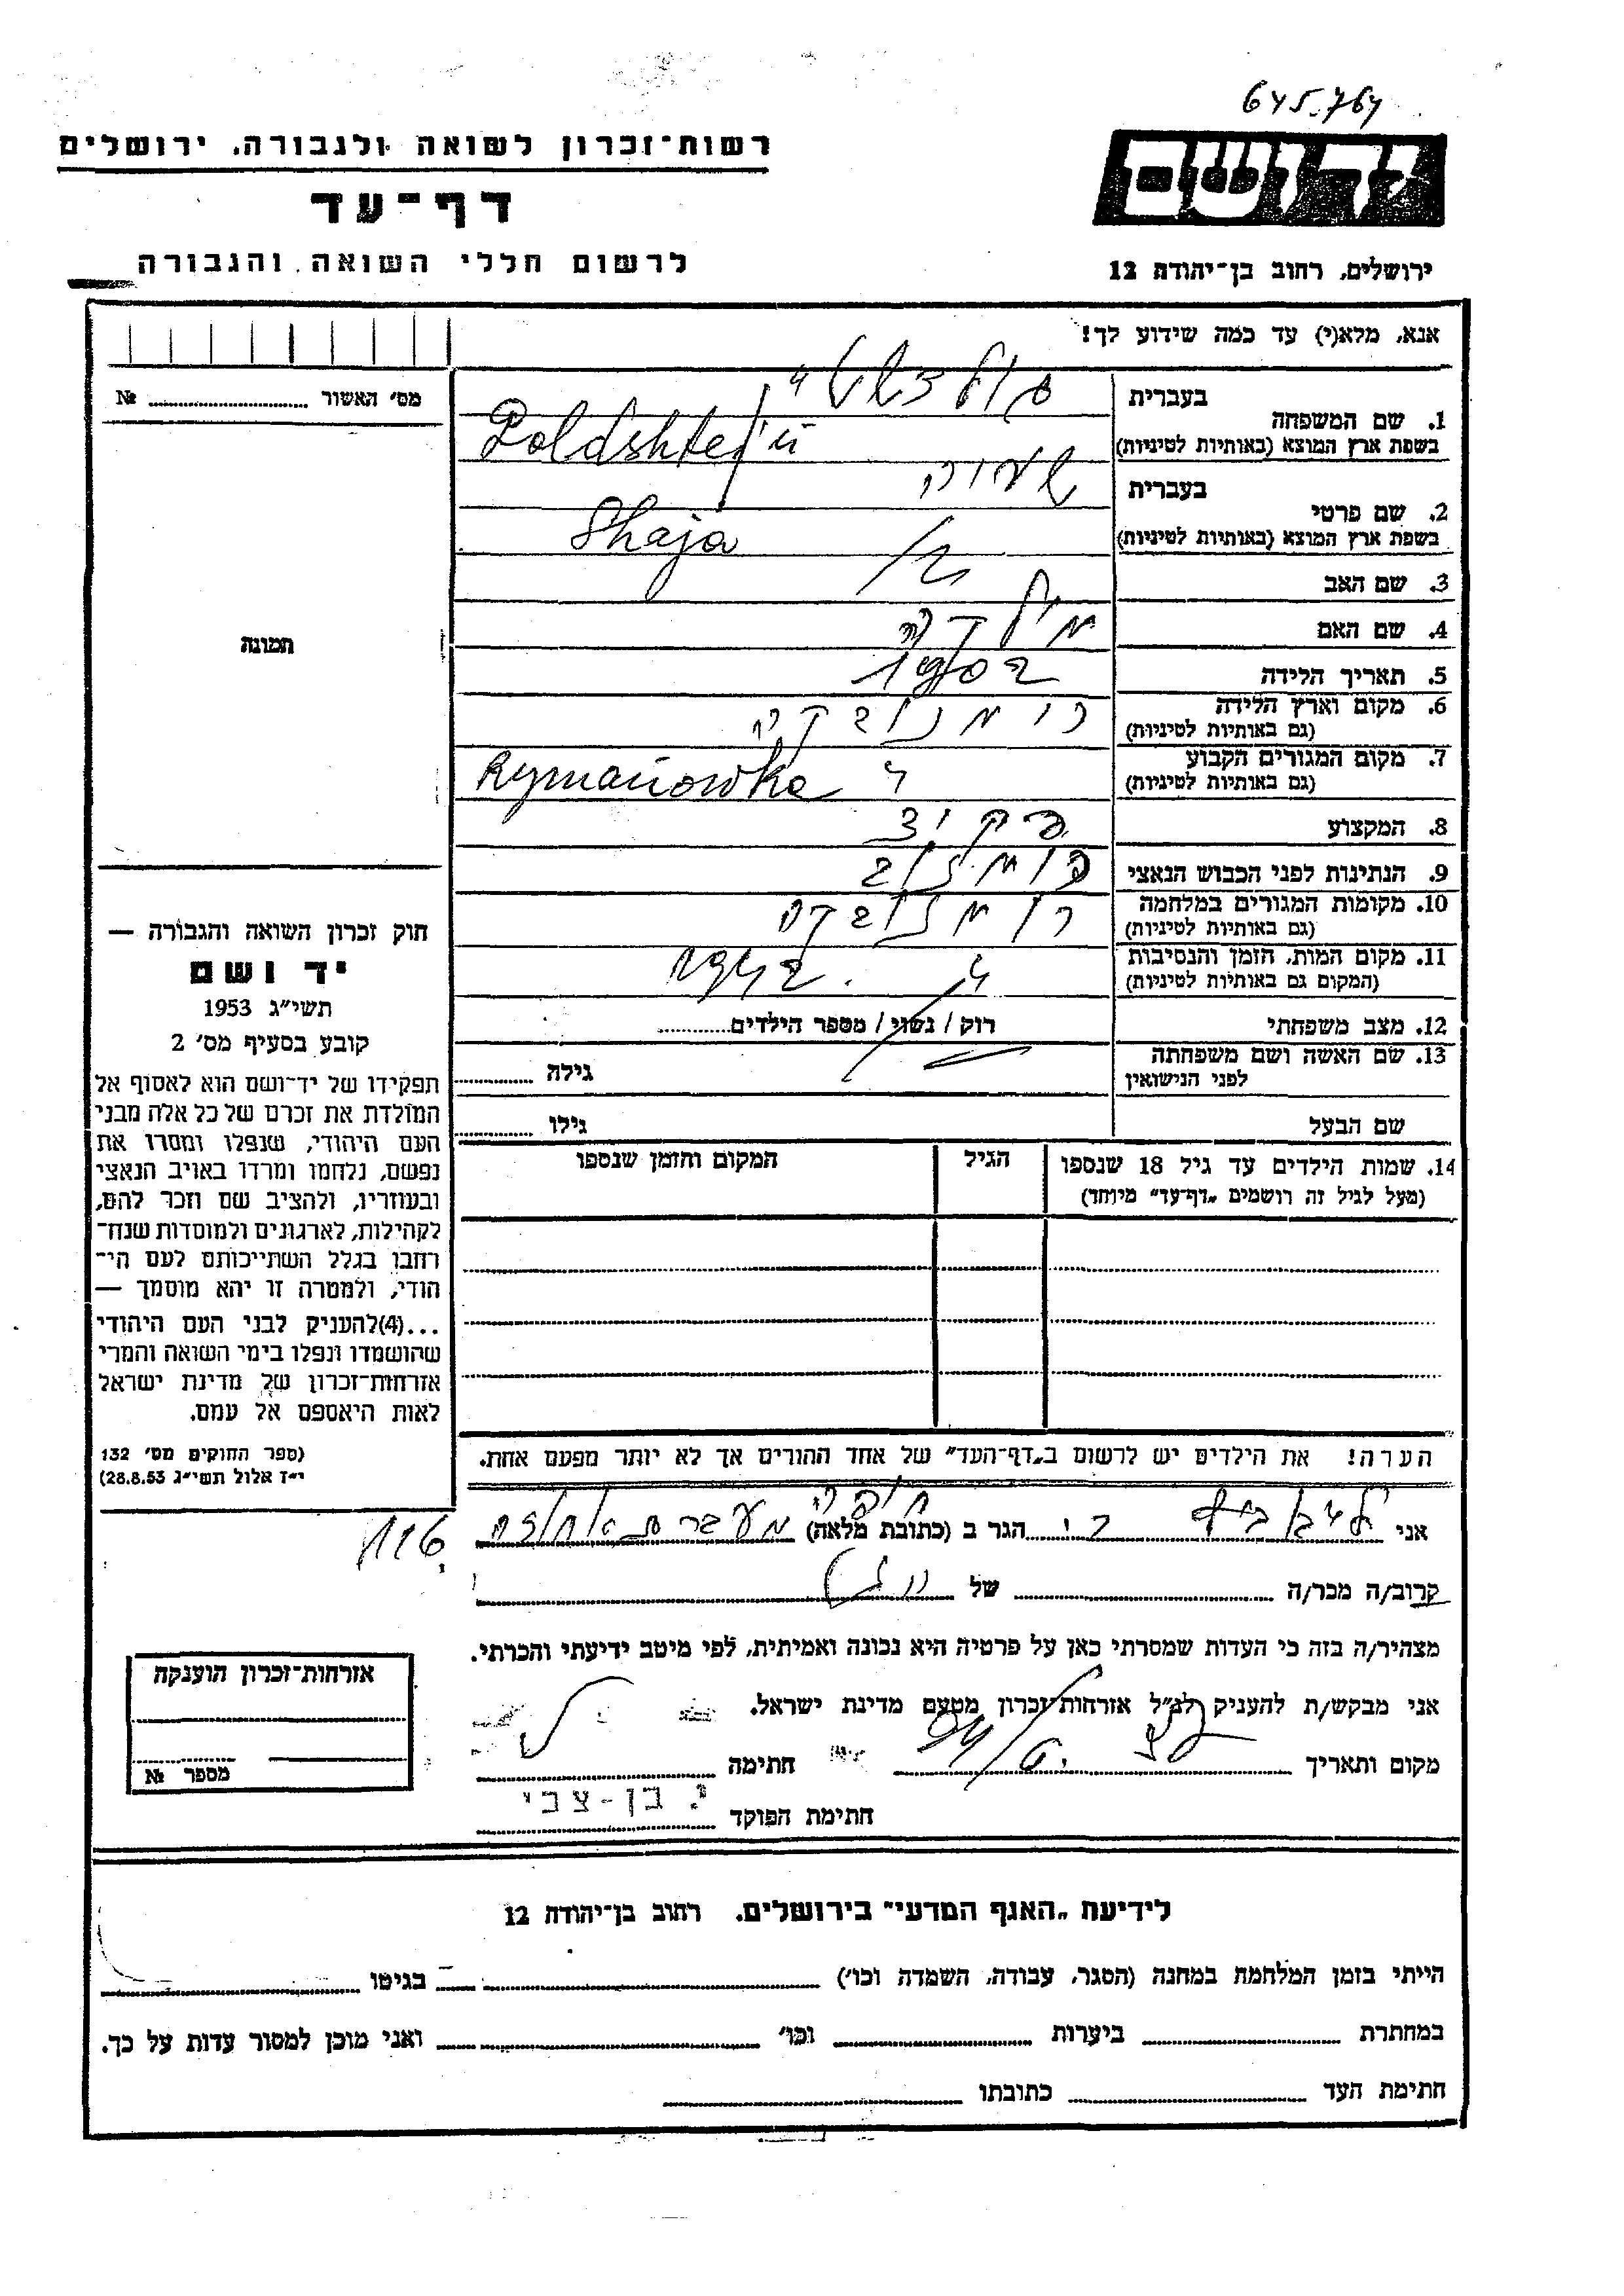 645.764
רשות־זכרון לשואה ולגבורה, ירושלים
יד ושם
דף־עד
לרשום חללי השואה והגבורה
ירושלים, רחוב בן־יהודה 12
אנא, מלא(י) עד כמה שידוע לך!
מס׳ האשור № 
1. שם המשפחה
בעברית
בשפת ארץ המוצא (באותיות לטיניות)
2. שם פרטי
בעברית
בשפת ארץ המוצא (באותיות לטיניות) Shaja
3. שם האב
4. שם האם
5. תאריך הלידה 1902
6. מקום וארץ הלידה
(גם באותיות לטיניות)
7. מקום המגורים הקבוע
(גם באותיות לטיניות) Rymanowka
8. המקצוע
9. הנתינות לפני הכבוש הנאצי
10. מקומות המגורים במלחמה
(גם באותיות לטיניות)
11. מקום המות, הזמן והנסיבות 1942
(המקום גם באותיות לטיניות)
12. מצב משפחתי רוק / נשוי / מספר הילדים
13. שם האשה ושם משפחתה
לפני הנישואין גילה
שם הבעל גילו
14. שמות הילדים עד גיל 18 שנספו הגיל המקום והזמן שנספו
(מעל לגיל זה רושמים „דף־עד״ מיוחד)
הערה! את הילדים יש לרשום ב„דף־העד״ של אחד ההורים אך לא יותר מפעם אחת.
תמונה
חוק זכרון השואה והגבורה —
יד ושם
תשי״ג 1953
קובע בסעיף מס׳ 2
תפקידו של יד־ושם הוא לאסוף אל
המולדת את זכרם של כל אלה מבני
העם היהודי, שנפלו ומסרו את
נפשם, נלחמו ומרדו באויב הנאצי
ובעוזריו, ולהציב שם וזכר להם,
לקהילות, לארגונים ולמוסדות שנח־
רחבו בגלל השתייכותם לעם הי־
הודי, ולמטרה זו יהא מוסמך —
...(4)להעניק לבני העם היהודי
שהושמדו ונפלו בימי השואה והמרי
אזרחות־זכרון של מדינת ישראל
לאות היאספם אל עמם.
(ספר החוקים מס׳ 132
י״ז אלול תשי״ג 28.8.53)
אני הגר ב (כתובת מלאה)
קרוב/ה מכר/ה של
מצהיר/ה בזה כי העדות שמסרתי כאן על פרטיה היא נכונה ואמיתית, לפי מיטב ידיעתי והכרתי.
אני מבקש/ת להעניק לנ״ל אזרחות־זכרון מטעם מדינת ישראל.
מקום ותאריך חתימה
חתימת הפוקד י. בן-צבי
אזרחות־זכרון הוענקה
מספר №
לידיעת „האגף המדעי״ בירושלים. רחוב בן־יהודה 12
הייתי בזמן המלחמה במחנה (הסגר, עבודה, השמדה וכו׳) בגיטו
במחתרת ביערות וכו׳ ואני מוכן למסור עדות על כך.
חתימת העד כתובתו